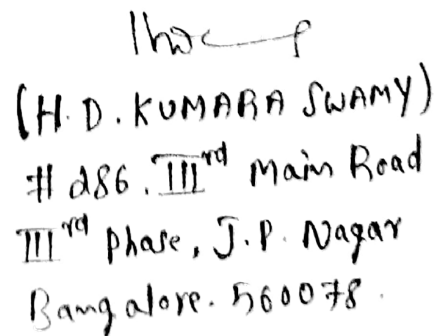 (H.D. KUMARA SWAMY)
# 286. IIIrd Main Road
IIIrd Phase, J.P. Nagar
Bangalore. 560078.